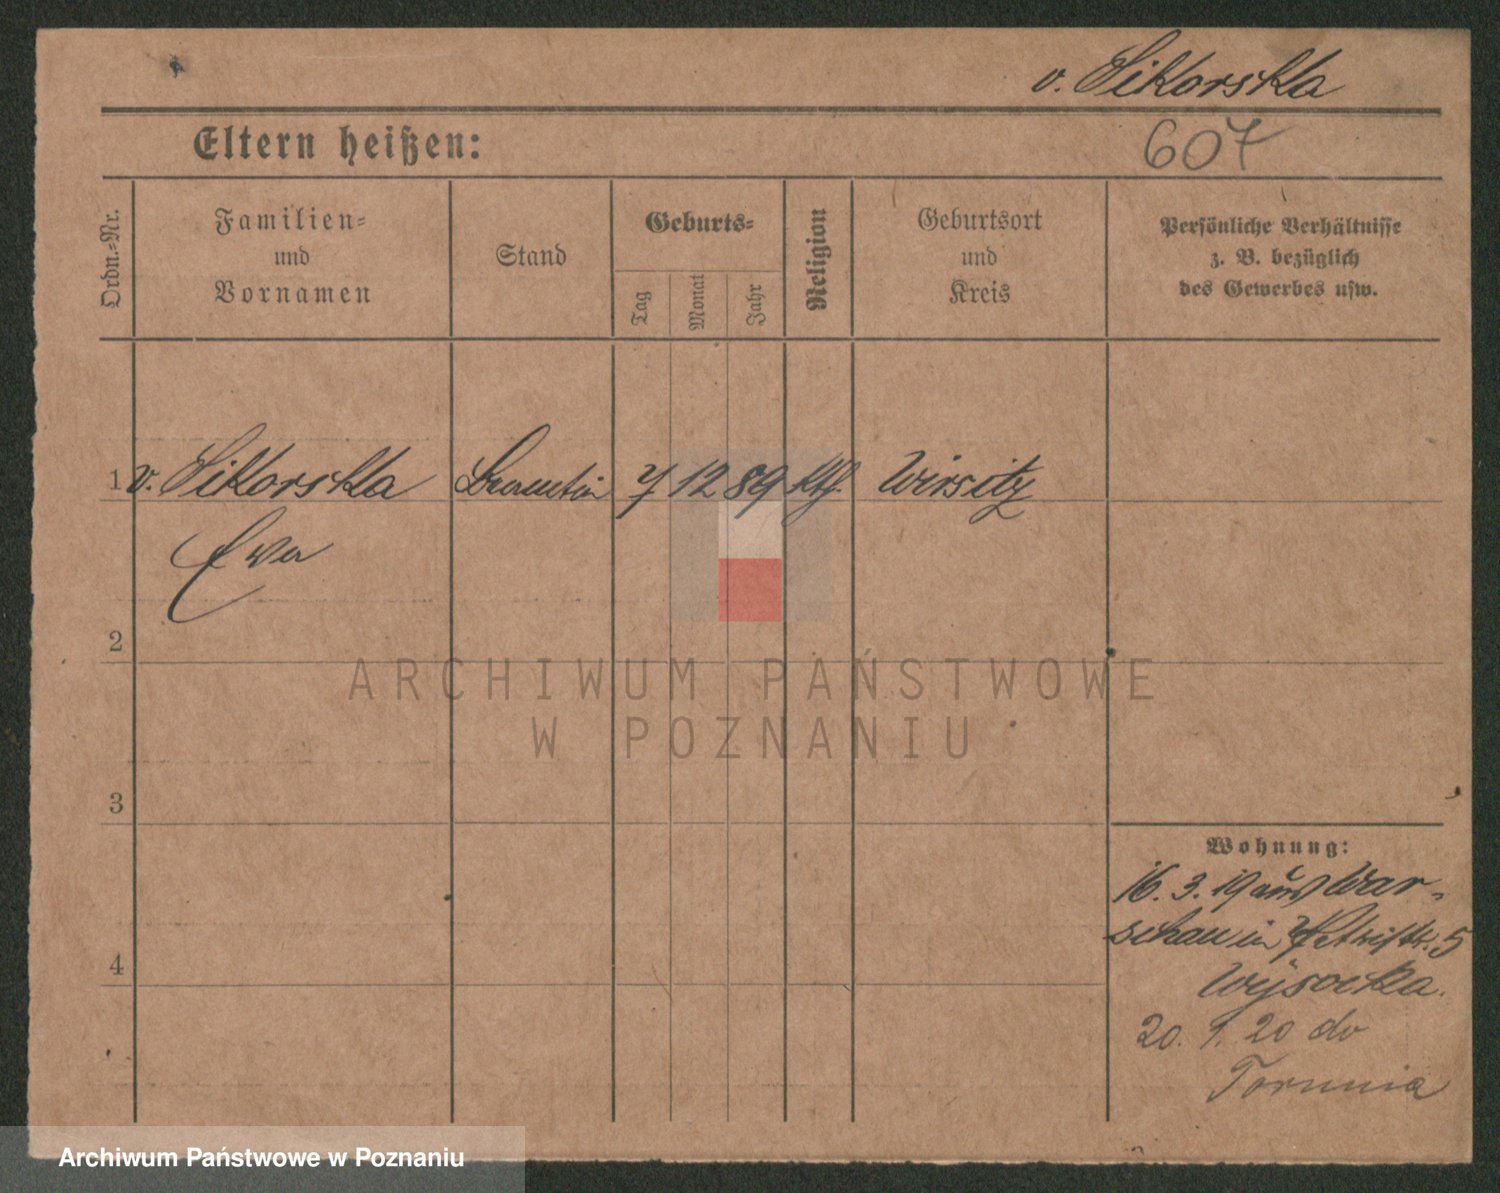 v. Sikorska
Eltern heißen:
607
Ordn.=Nr.
Familien=
und
Vornamen
Stand
Geburts=
Tag
Monat
Jahr
Religion
Geburtsort
und
Kreis
Persönliche Verhältnisse
z. B. bezüglich
des Gewerbes usw.
1 v. Sikorska Beamtin 7 12 89 kth. Wirsitz
Ewa
2
ARCHIWUM PAŃSTWOWE
W POZNANIU
3
4
Wohnung:
16. 3. 19 aus War-
schau in Petristr. 5
Wysocka.
20. 1. 20 do
Torunia
Archiwum Państwowe w Poznaniu